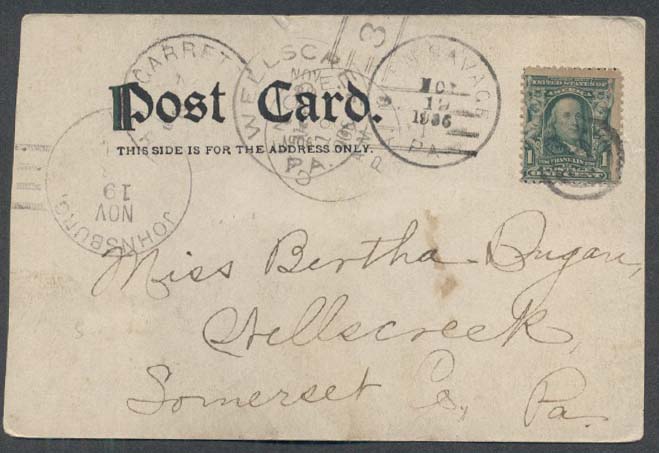 GARRET
WELLSC
NOV
PA.
3
SAVAGE
NOV
19
1906
PA.
Post Card.
THIS SIDE IS FOR THE ADDRESS ONLY.
JOHNSBURG,
NOV
19
UNITED STATES OF
FRANKLIN
1 POSTAGE 1
ONE CENT
Miss Bertha Dugan,
Wellscreek,
Somerset Co., Pa.